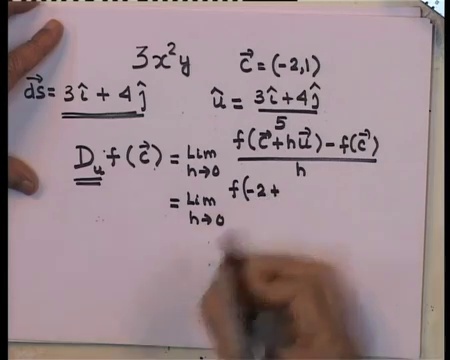 3x²y    c⃗ = (-2,1)
d⃗s = 3î + 4ĵ    û = (3î+4ĵ)/5
D_u f(c⃗) = Lim h→0 (f(c⃗+hu⃗) - f(c⃗))/h
= Lim h→0 f(-2 +